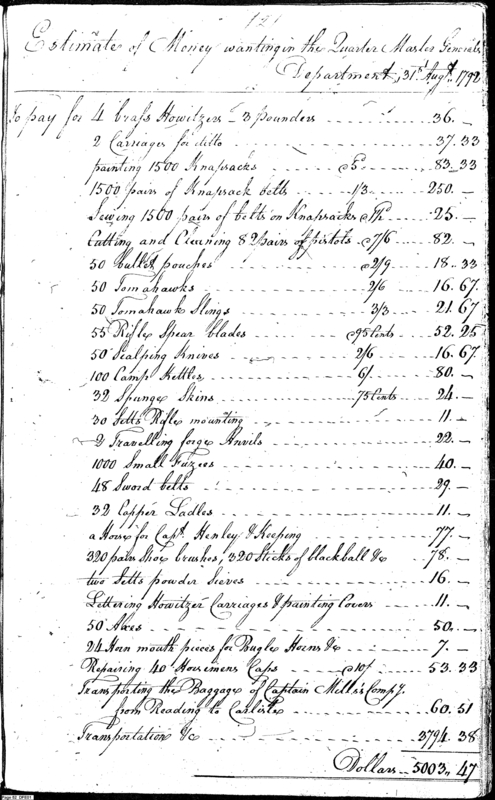 121
Estimate of Money wanting in the Quarter Master Generals
Department, 31st Augt. 1792
To pay for 4 brass Howitzers - 3 pounders 36. -
2 Carriages for ditto 37. 33
painting 1500 Knapsacks 83. 33
1500 pairs of Knapsack belts 1/3 250. -
Sewing 1500 pairs of belts on Knapsacks 25. -
Cutting and Cleaning 82 pairs of pistols @ 7/6 82. -
50 bullet pouches @ 2/9 18. 33
50 Tomahawks 2/6 16. 67
50 Tomahawk Slings 3/3 21. 67
55 Rifle Spear blades @ 95 Cents 52. 25
50 Scalping Knives 2/6 16. 67.
100 Camp Kettles 6/ 80. -
32 Spunge Skins 75 Cents 24. -
30 Setts Rifle mounting 11. -
2 Travelling forge Anvils 22. -
1000 Small Fuzees 40. -
48 Sword belts 29. -
32 Copper Ladles 11. -
a Horse for Capt. Henley & Keeping 77. -
320 pairs Shoe brushes, 320 Sticks of blackball &c 78. -
two Setts powder Sieves 16. -
Lettering Howitzer Carriages & painting Covers 11. -
50 Axes 50. -
24 Horn mouth pieces for Bugle Horns &c 7. -
Repairing 40 Horsemens Caps @ 10/ 53. 33
Transporting the Baggage of Captain Mills's Compy.
from Reading to Carlisle 60. 51
Transportation &c 3794. 38
Dollars 5003. 47